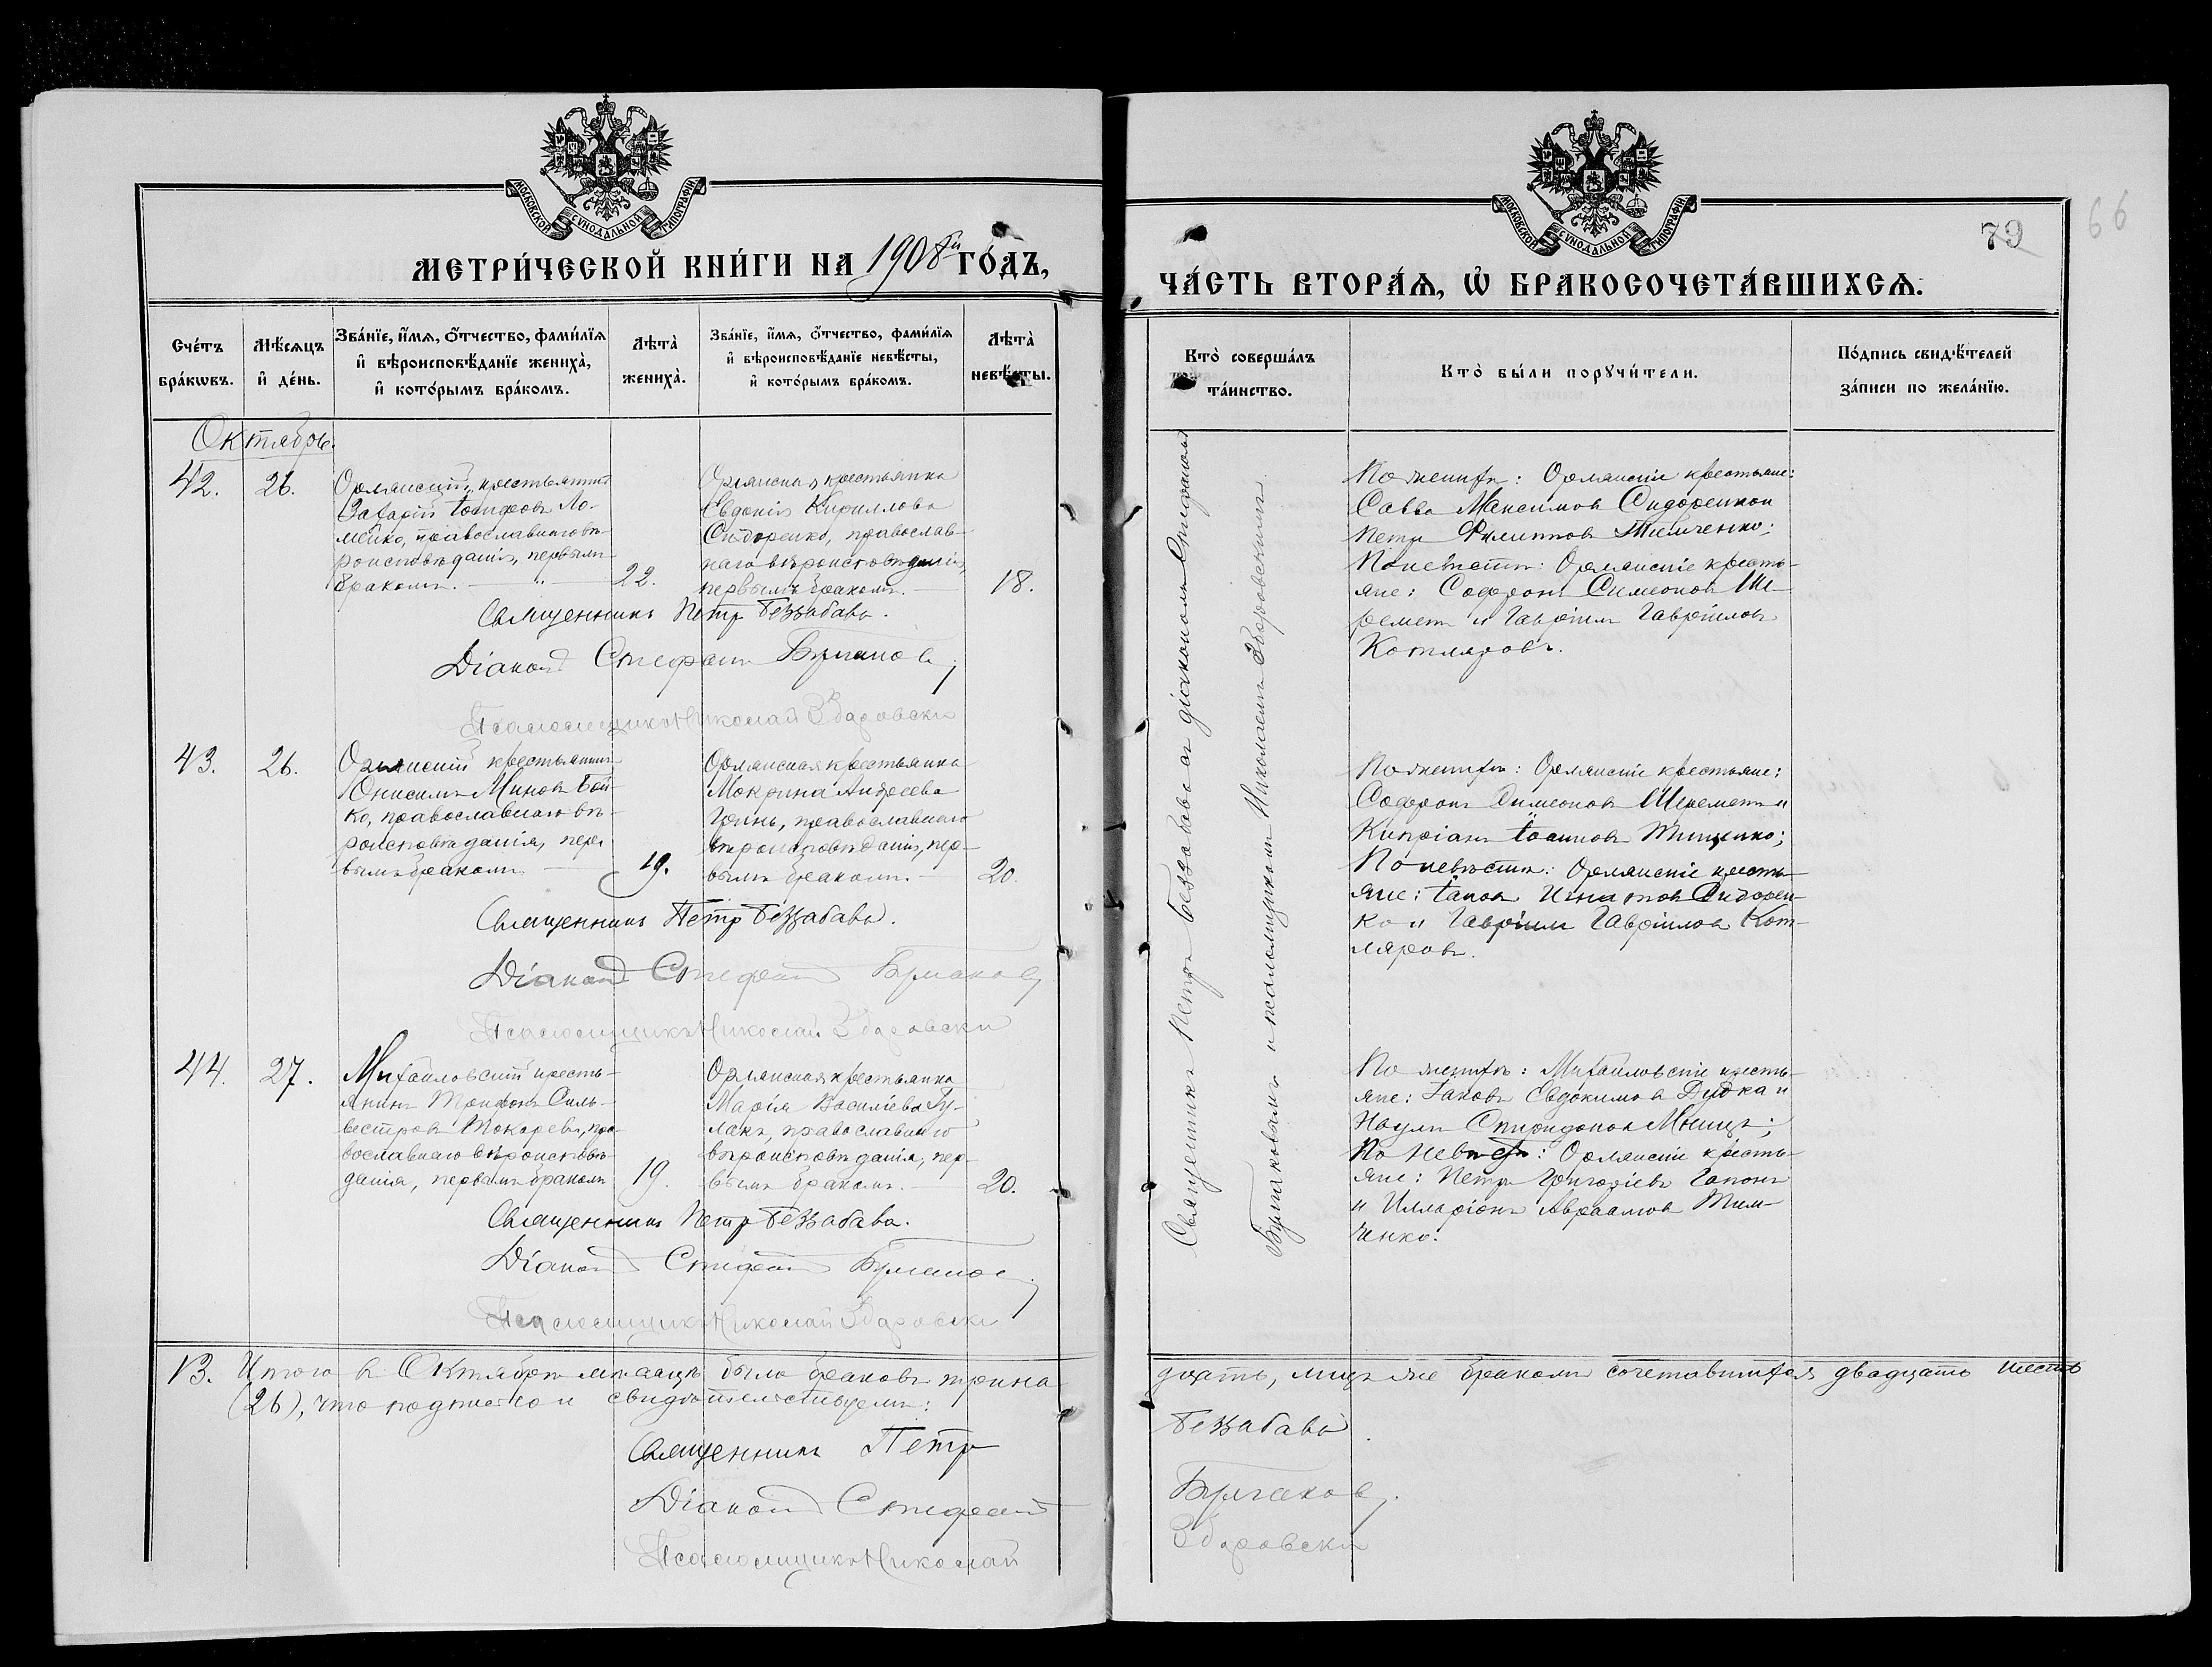 МОСКОВСКОЙ СУНОДАЛЬНОЙ ТИПОГРАФІИ
МЕТРИ́ЧЕСКОЙ КНИ́ГИ НА 1908й ГО́ДЪ,
Сче́тъ бра́кωвъ.
Мѣ́сяцъ и҆ де́нь.
Зва́нїе, и҆́мя, ѻ҆́тчество, фами́лїя
и҆ вѣроисповѣ́данїе жениха̀,
и҆ кото́рымъ бра́комъ.
Лѣта̀ жениха̀.
Зва́нїе, и҆́мя, ѻ҆́тчество, фами́лїя
и҆ вѣроисповѣ́данїе невѣ́сты,
и҆ кото́рымъ бра́комъ.
Лѣта̀ невѣ́сты.
Октябрь.
42.
26.
Орлянскій крестьянинъ
Захарій Іосифовъ Ло-
мейко, православнаго вѣ-
роисповѣданія, первымъ
бракомъ.
22.
Орлянская крестьянка
Евдокія Кириллова
Сидоренко, православ-
наго вѣроисповѣданія,
первымъ бракомъ.
18.
Священникъ Петръ Беззабава.
Діаконъ Стефанъ Булгаковъ
Псаломщикъ Николай Збаровскій
43.
26.
Орлянскій крестьянинъ
Онисимъ Миновъ Бой-
ко, православнаго вѣ-
роисповѣданія, пер-
вымъ бракомъ
19.
Орлянская крестьянка
Мокрина Андреева
Гринь, православнаго
вѣроисповѣданія, пер-
вымъ бракомъ.
20.
Священникъ Петръ Беззабава.
Діаконъ Стефанъ Булгаковъ
Псаломщикъ Николай Збаровскій
44.
27.
Михайловскій кресть-
янинъ Трифонъ Силь-
вестровъ Токаревъ, пра-
вославнаго вѣроисповѣ-
данія, первымъ бракомъ
19.
Орлянская крестьянка
Марія Василіева Гу-
лакъ, православнаго
вѣроисповѣданія, пер-
вымъ бракомъ.
20.
Священникъ Петръ Беззабава.
Діаконъ Стефанъ Булгаковъ
Псаломщикъ Николай Збаровскій
NB. Итого въ Октябрѣ мѣсяцѣ было браковъ трина-
(26), что подписью и свидѣтельствуемъ:
Священникъ Петръ
Діаконъ Стефанъ
Псаломщикъ Николай
МОСКОВСКОЙ СУНОДАЛЬНОЙ ТИПОГРАФІИ
79
66
ЧА́СТЬ ВТОРА́Я, Ѡ҆ БРАКОСОЧЕТА́ВШИХСЯ.
Кто̀ соверша́лъ
та́инство.
Кто̀ бы́ли порꙋчи́тели.
По́дпись свидѣ́телей
за́писи по жела́нїю.
Священникъ Петръ Беззабава съ діакономъ Стефаномъ
Булгаковымъ и псаломщикомъ Николаемъ Збаровскимъ.
По женихѣ: Орлянскіе крестьяне:
Савва Максимовъ Сидоренко и
Петръ Филипповъ Тимченко;
По невѣстѣ: Орлянскіе кресть-
яне: Софронъ Симеоновъ Ше-
реметъ и Гавріилъ Гавріиловъ
Котляровъ.
По женихѣ: Орлянскіе крестьяне:
Софронъ Симеоновъ Шереметъ и
Кипріанъ Іоанновъ Тищенко;
По невѣстѣ: Орлянскіе кресть-
яне: Іаковъ Игнатовъ Сидорен-
ко и Гавріилъ Гавріиловъ Кот-
ляровъ.
По женихѣ: Михайловскіе кресть-
яне: Іаковъ Евдокимовъ Дудка и
Наумъ Спиридоновъ
По невѣстѣ: Орлянскіе кресть-
яне: Петръ Григоріевъ Гапонъ
и Илларіонъ Авраамовъ Тим-
ченко.
дцать, лицъ же бракомъ сочетавшихся двадцать шесть
Беззабава.
Булгаковъ.
Збаровскій